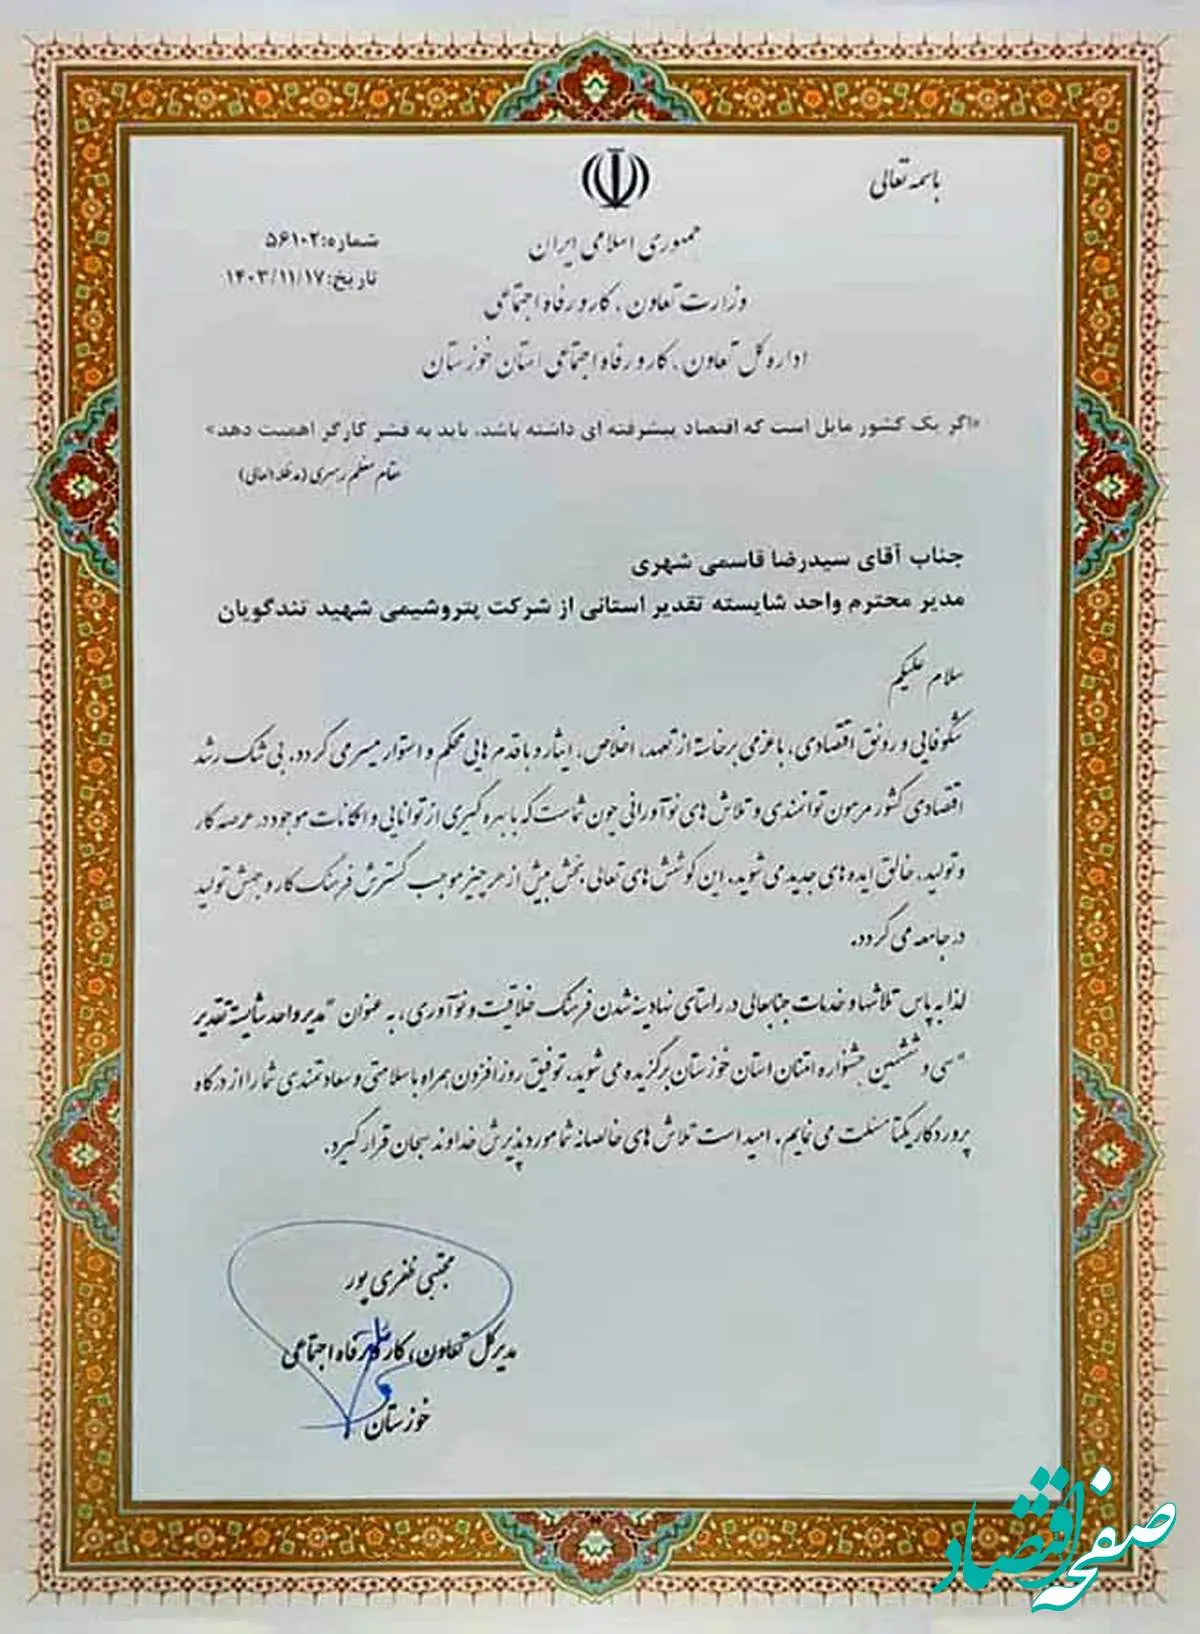 باسمه تعالی
جمهوری اسلامی ایران
وزارت تعاون، کار و رفاه اجتماعی
اداره کل تعاون، کار و رفاه اجتماعی استان خوزستان
شماره:۵۶۱۰۲
تاریخ:۱۴۰۳/۱۱/۱۷
«اگر یک کشور مایل است که اقتصاد پیشرفته ای داشته باشد، باید به قشر کارگر اهمیت دهد»
مقام معظم رهبری (مدظله العالی)
جناب آقای سیدرضا قاسمی شهری
مدیر محترم واحد شایسته تقدیر استانی از شرکت پتروشیمی شهید تندگویان
سلام علیکم
شکوفایی و رونق اقتصادی، با عزمی برخاسته از تعهد، اخلاص، ایثار و با قدم هایی محکم و استوار میسر می گردد. بی شک رشد
اقتصادی کشور مرهون توانمندی و تلاش های نوآورانی چون شماست که با بهره گیری از توانایی و امکانات موجود در عرصه کار
و تولید، خالق ایده های جدید می شوید. این کوشش های تعالی بخش بیش از هر چیز موجب گسترش فرهنگ کار و جهش تولید
در جامعه می گردد.
لذا به پاس تلاشها و خدمات جنابعالی در راستای نهادینه شدن فرهنگ خلاقیت و نوآوری، به عنوان "مدیر واحد شایسته تقدیر
"سی و ششمین جشنواره امتنان استان خوزستان برگزیده می شوید. توفیق روزافزون همراه با سلامتی و سعادتمندی شما را از درگاه
پروردگار یکتا مسئلت می نمایم. امید است تلاش های خالصانه شما مورد پذیرش خداوند سبحان قرار گیرد.
مجتبی ظفری پور
مدیرکل تعاون، کار و رفاه اجتماعی
خوزستان
صفحه اقتصاد